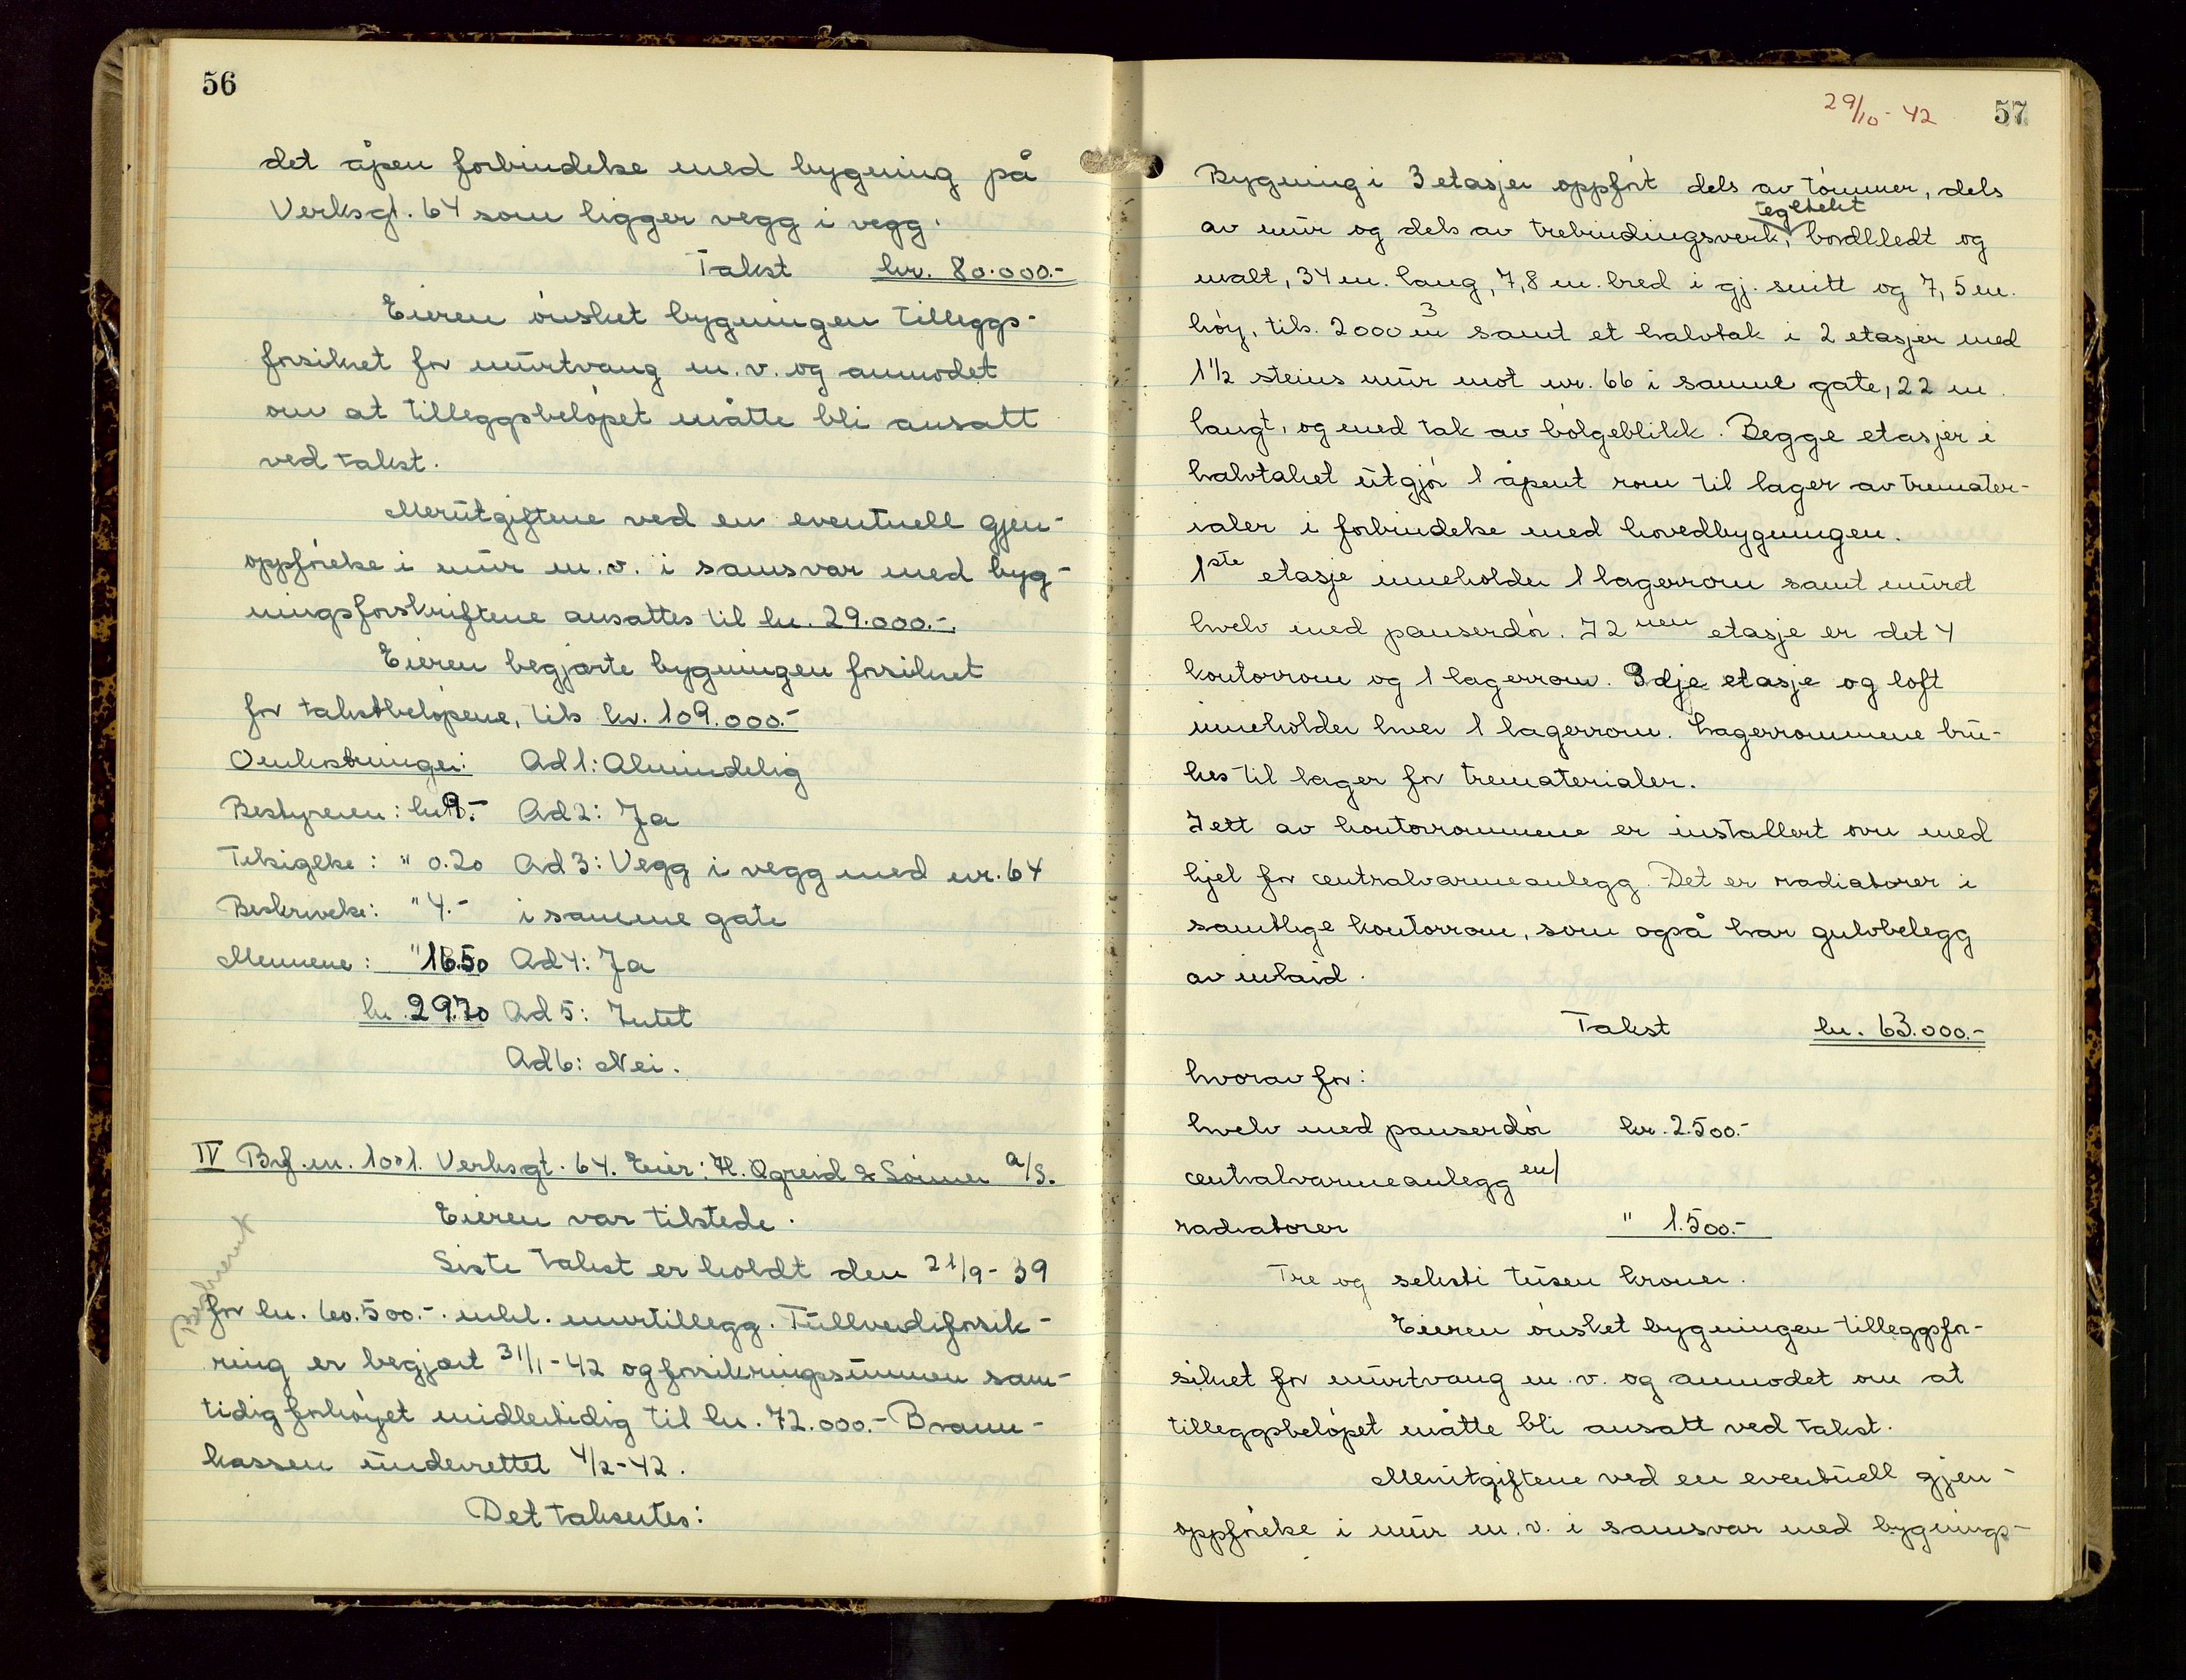 56
det åpen forbindelse med bygning på
Verksgt. 64 som ligger vegg i vegg.
Takst kr. 80.000.-
Eieren ønsket bygningen tilleggs-
forsikret for murtvang m.v. og anmodet
om at tilleggsbeløpet måtte bli ansatt
ved takst.
Merutgiftene ved en eventuell gjen-
oppførelse i mur m.v. i samsvar med byg-
ningsforskriftene ansattes til kr. 29.000.-.
Eieren begjærte bygningen forsikret
for takstbeløpene, tils. kr. 109.000.-
Omkostninger: Ad 1: Almindelig
Bestyreren: kr 9.- Ad 2: Ja
Teksigelse: " 0.20 Ad 3: Vegg i vegg med nr. 64
Beskrivelse: " 4.- i samme gate
Mennene: " 16.50 Ad 4: Ja
kr. 29.70 Ad 5: Intet
Ad 6: Nei.
IV Brf. nr. 1001. Verksgt. 64. Eier: H. Øgreid & Sønner A/S.
Eieren var tilstede.
Siste takst er holdt den 21/9-39
for kr. 60.500.-. inkl. murtillegg. Fullverdiforsik-
ring er begjært 31/1-42 og forsikringssummen sam-
tidig forhøyet midlertidig til kr. 72.000.- Brann-
kassen underrettet 4/2-42.
Det takseres:
29/10-42 57
Bygning i 3 etasjer oppført dels av tømmer, dels
teglhekt
av mur og dels av trebindingsverk, bordkledt og
malt, 34 m. lang, 7,8 m. bred i gj. snitt og 7,5 m.
høy, tils. 2000 m3 samt et halvtak i 2 etasjer med
1 1/2 steins mur mot nr. 66 i samme gate, 22 m.
langt, og med tak av bølgeblikk. Begge etasjer i
halvtaket utgjør 1 åpent rom til lager av tremater-
ialer i forbindelse med hovedbygningen.
1ste etasje inneholder 1 lagerrom samt muret
hvelv med panserdør. I 2nen etasje er det 4
kontorrom og 1 lagerrom. 3dje etasje og loft
inneholder hver 1 lagerrom. Lagerrommene bru-
kes til lager for trematerialer.
I ett av kontorrommene er installert ovn med
kjel for centralvarmeanlegg. Det er radiatorer i
samtlige kontorrom, som også har gulvbelegg
av inlaid.
Takst kr. 63.000.-
hvorav for:
hvelv med panserdør kr. 2.500.-
centralvarmeanlegg m/
radiatorer " 1.500.-
Tre og seksti tusen kroner.
Eieren ønsket bygningen tilleggsfor-
sikret for murtvang m.v. og anmodet om at
tilleggsbeløpet måtte bli ansatt ved takst.
Merutgiftene ved en eventuell gjen-
oppførelse i mur m.v. i samsvar med bygnings-